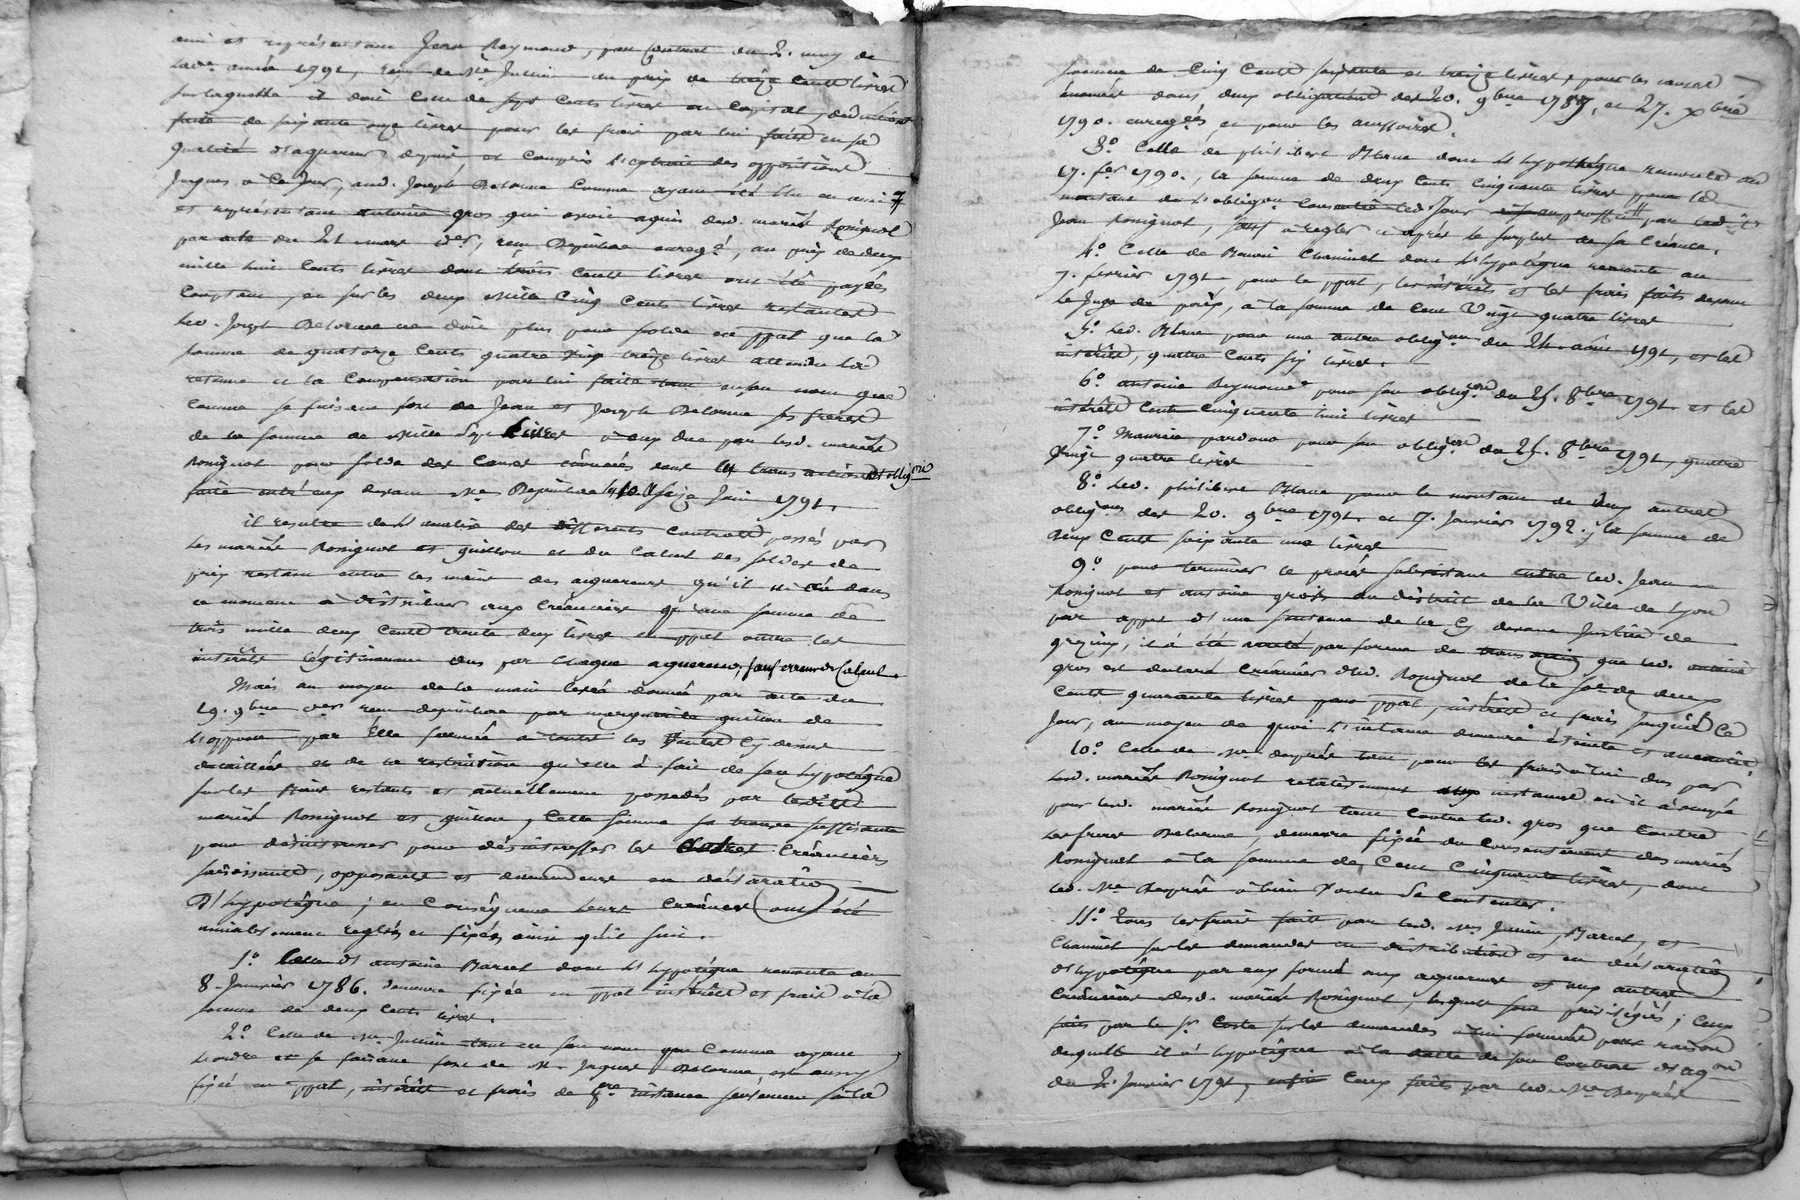 ami et représentant Jean Reymond, par contrat du 2. may de
lad. année 1791, reçu de Me Jullien au prix de treize cents livres
sur laquelle il doit celle de sept cents livres en capital, déduction
faite de soixante onze livres pour les frais par lui faits en sa
qualité d'acquereur depuis et compris l'extrait des oppositions
jusques à ce jour, aud. Joseph Delorme comme ayant été élu en ami
et représentant antoine gros qui avoit acquis desd. mariés Rosignol
par acte du 21 mars der, reçu Depinlac enregé, au prix de deux
mille huit cents livres dont trois cents livres ont été payées
comptant, et sur les deux mille cinq cents livres restantes
led. Joseph Delorme ne doit plus pour solde en ppal que la
somme de quatorze cents quatre vingt treize livres attendu la
retenue et la compensation par lui faite tant en son nom que
comme se faisant fort de Jean et Joseph Delorme ses freres
de la somme de mille sept livres à eux due par lesd. mariés
Rosignol pour solde des causes énoncées dans
faite entr'eux devant Me Depinlac le seize Juin 1791.
il resulte de l'analise des differents contrats passés par
les mariés Rosignol et guillon et du calcul des soldes de
prix restant entre les mains des acquereurs qu'il n'i a dans
ce moment à distribuer aux créanciers qu'une somme de
trois mille deux cents trente deux livres en ppal outre les
intérêts légitimement dus par chaque acquereur, sauf erreur de calcul.
Mais au moyen de la main levée donnée par acte du
19. 9bre der reçu depinlac par marguerite guillon de
l'opposon par Elle formée à toutes les Ventes cy dessus
detaillées et de la restriction qu'elle a fait de son hypotéque
sur les fonds restants et actuellement possedés par lesdits
mariés Rosignol et guillon, cette somme se trouve suffisante
pour desinteresser pour desinteresser les autres créanciers
saisissants, opposants et demandeurs en déclaration
D'hypotéque; en conséquence leurs créances ont été
amiablement reglées et fixées ainsi qu'il suit.
1.° Celle d'antoine Barcel dont l'hypotéque remonte au
8. Janvier 1786. demeure fixée en ppal intérêts et frais à la
somme de deux cents livres.
2.° Celle de Me Jullien tant en son nom que comme ayant
l'ordre et se faisant fort de Me Jaques Delorme est aussy
fixée en ppal, intérêts et frais de 1re instance seulement à la
somme de Cinq Cents soixante et treize livres, pour les causes
énoncées dans deux obligations des 20. 9bre 1787, et 27. Xbre
1790. enregées, et pour les accessoires.
3.° Celle de philibert Blanc dont l'hypothéque remonte au
17. fer 1790., la somme de deux cents cinquante livres pour le
montant de l'obligon led. Jour par led.
Jean Rosignol, sauf à regler ci après le surplus de sa créance.
4.° Celle de Benoit Chaminet dont l'hypotéque remonte au
7. fevrier 1791 pour le ppal, les intérêts et les frais faits devant
le Juge de paix, à la somme de cent Vingt quatre livres
5.° Led. Blanc pour une autre obligon du 24. août 1791, et les
intérêts, quatre cents six livres.
6.° antoine Reymond pour son obligon du 25. 8bre 1791. et les
intérêts cent cinquante huit livres
7.° Maurice pardon pour son obligon du 25. 8bre 1791, quatre
Vingt quatre livres
8.° Led. philibert Blanc pour le montant de deux autres
obligons des 20. 9bre 1791. et 17. Janvier 1792., la somme de
deux cents soixante une livres
9.° pour terminer le procès subsistant entre led. Jean
Rosignol et antoine gros au district de la Ville de Lyon
par appel d'une sentence de la Cy devant Justice de
grezieu, il a été arreté par forme de transaction que led. antoine
gros est declaré créancier dud. Rosignol de la somme de deux
cents quarante livres pour ppal, intérêts et frais jusqu'à ce
Jour, au moyen de quoi l'instance demeure éteinte et anéantie.
10.° Celle de Me deyriés tant pour les frais à lui dus par
lesd. mariés Rosignol relativement aux instances où il a occupé
pour lesd. mariés Rosignol tant contre led. gros que contre
les freres Delorme, demeure fixée du consentement des mariés
Rosignol à la somme de Cent Cinquante livres, dont
led. Me Deyriés a bien Voulu se contenter.
11.° Tous les frais faits par lesd. Mes Jullien, Barcel, et
Chaminet sur les demandes en distribution et en déclaration
d'hypotéque par eux formées aux acquereurs et aux autres
créanciers desd. mariés Rosignol, lesquels sont privilégiés; Ceux
faits par le Sr Coste sur les demandes à lui formées pour raison
desquels il a hypotéque à la datte de son contrat d'acqon
du 2. Janvier 1791, enfin Ceux faits par led. Me Deyriés